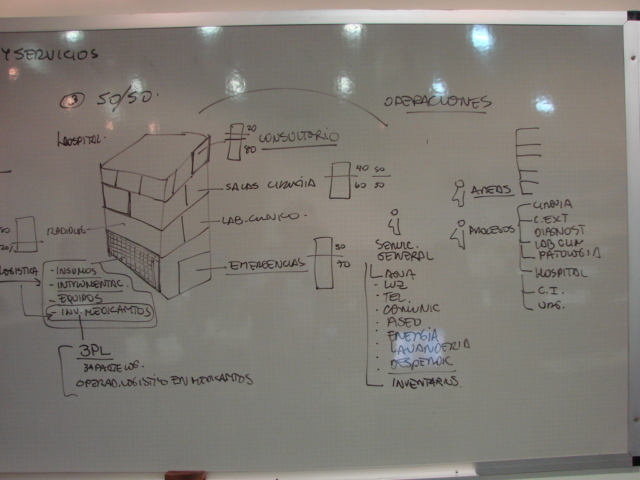 Y SERVICIOS
③ 50/50.
OPERACIONES
HOSPITAL.
20
80
CONSULTORIO
SALAS CIRUGIA
40 50
60 50
LAB. CLINICO.
RADIOLOG
EMERGENCIAS
30
70
LOGISTICA
- INSUMOS
- INTRUMENTAL
- EQUIPOS
- INV. MEDICAMTOS
3PL
3A PARTE LOG.
OPERAD. LOGISTICO EN MEDICAMTOS
i
SERVIC.
GENERAL
AGUA
· LUZ
· TEL.
· COMUNIC
· ASEO
· ENERGIA
· LAVANDERIA
· DESPERDIC
INVENTARIOS.
i AREAS
i PROCESOS
CIRUGIA
C. EXT
DIAGNOST
LAB CLIN
PATOLOGIA
HOSPITAL
C. I.
URG.